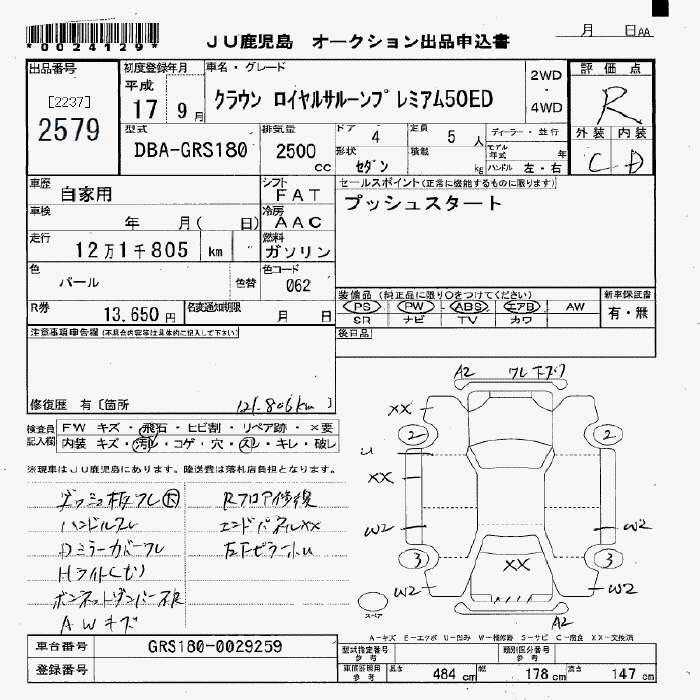 *0024129*
JU鹿児島 オークション出品申込書
月 日AA
出品番号
[2237]
2579
初度登録年月
平成
17 9月
車名・グレード
クラウン ロイヤルサルーンプレミアム50ED
2WD
・
4WD
評価点
R
外装 内装
C D
型式
DBA-GRS180
排気量
2500
cc
ドア 4
定員 5 人
ディーラー・並行
形状 セダン
積載 kg
モデル年式 年
ハンドル 左・右
車歴
自家用
シフト
FAT
セールスポイント(正常に機能するものに限ります)
プッシュスタート
車検
年 月( 日)
冷房
AAC
走行
12万1千805 km
燃料
ガソリン
色
パール
色替
色コード
062
装備品(純正品に限り○をつけてください)
PS PW ABS エアB AW
SR ナビ TV カワ
新車保証書
有・無
R券
13,650円
名変通知期限
月 日
後日品
注意事項申告欄(不具合内容等は具体的に記入して下さい)
修復歴 有〔箇所 121,806km 〕
検査員記入欄
FW キズ・飛石・ヒビ割・リペア跡・×要
内装 キズ・汚れ・コゲ・穴・スレ・キレ・破レ
※現車はJU鹿児島にあります。陸送費は落札店負担となります。
ダッシュ板ワレ
Rフロア修復
ハンドルスレ
エンドパネルXX
Dミラーカバーワレ
Hライトくもり
ボンネットダンパー不良
AWキズ
A2
XX
2
2
U
XX
W2
W2
3
3
XX
W2
W2
スペア
A2
A−キズ E−エクボ U−凹み W−補修跡 S−サビ C−腐食 XX−交換済
車台番号
GRS180-0029259
登録番号
型式指定番号
参考
類別区分番号
参考
車検証記載
参考
長さ 484 cm
幅 178 cm
高さ 147 cm